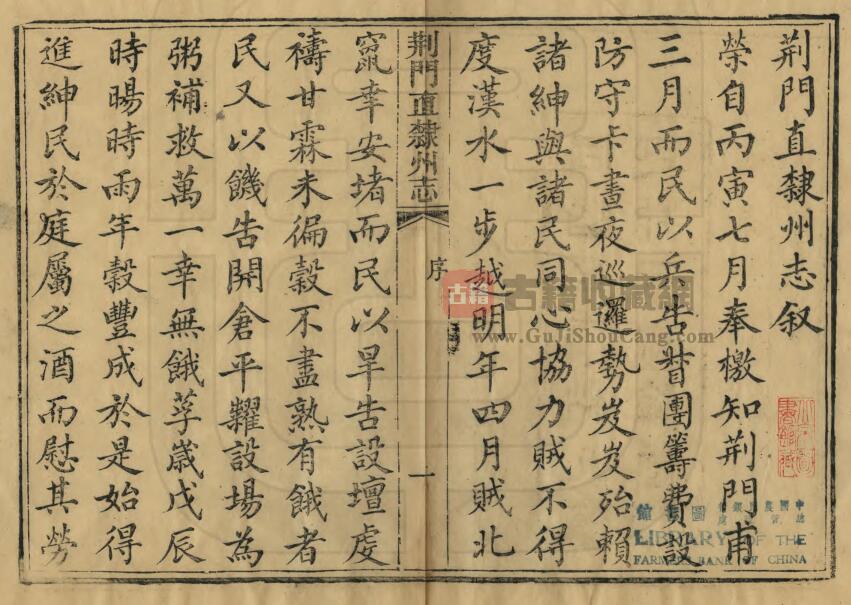 荆門直隸州志叙
榮自丙寅七月奉檄知荆門甫
三月而民以兵告督團籌費設
防守卡晝夜巡邏勢岌岌殆賴
諸紳與諸民同心協力賊不得
度漢水一步越明年四月賊北
荆門直隸州志
序
一
竄幸安堵而民以旱告設壇虔
禱甘霖未徧穀不盡熟有餓者
民又以饑告開倉平糶設場為
粥補救萬一幸無餓莩歲戊辰
時暘時雨年穀豐成於是始得
進紳民於庭屬之酒而慰其勞
古籍
古籍收藏網
www.GuJiShouCang.com
LIBRARY OF THE
FARMERS BANK OF CHINA